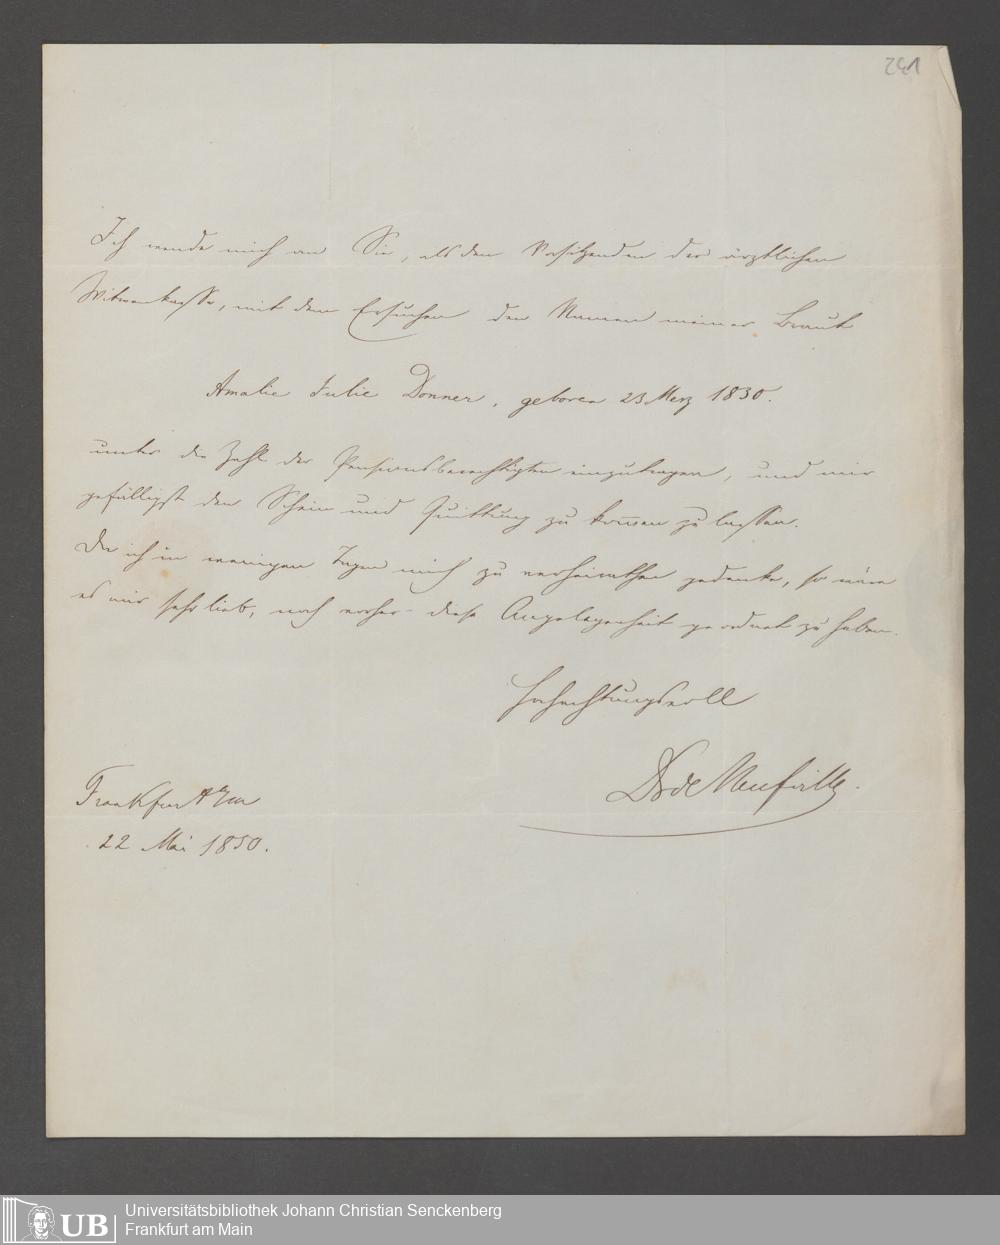 241
Ich wende mich an Sie, als den Vorsitzenden der ärztlichen
Witwenkasse, mit dem Ersuchen den Namen meiner Braut
Amalie Julie Donner, geboren 23 Merz 1830.
unter die Zahl der Pensionsberechtigten einzutragen, und mir
gefälligst den Schein und Quittung zu kommen zu lassen.
Da ich in wenigen Tagen mich zu verheirathen gedenke, so wäre
es mir sehr lieb, noch vorher diese Angelegenheit geordnet zu haben.
Hochachtungsvoll
Dr de Neufville.
Frankfurt a/m
22 Mai 1850.
UB
Universitätsbibliothek Johann Christian Senckenberg
Frankfurt am Main